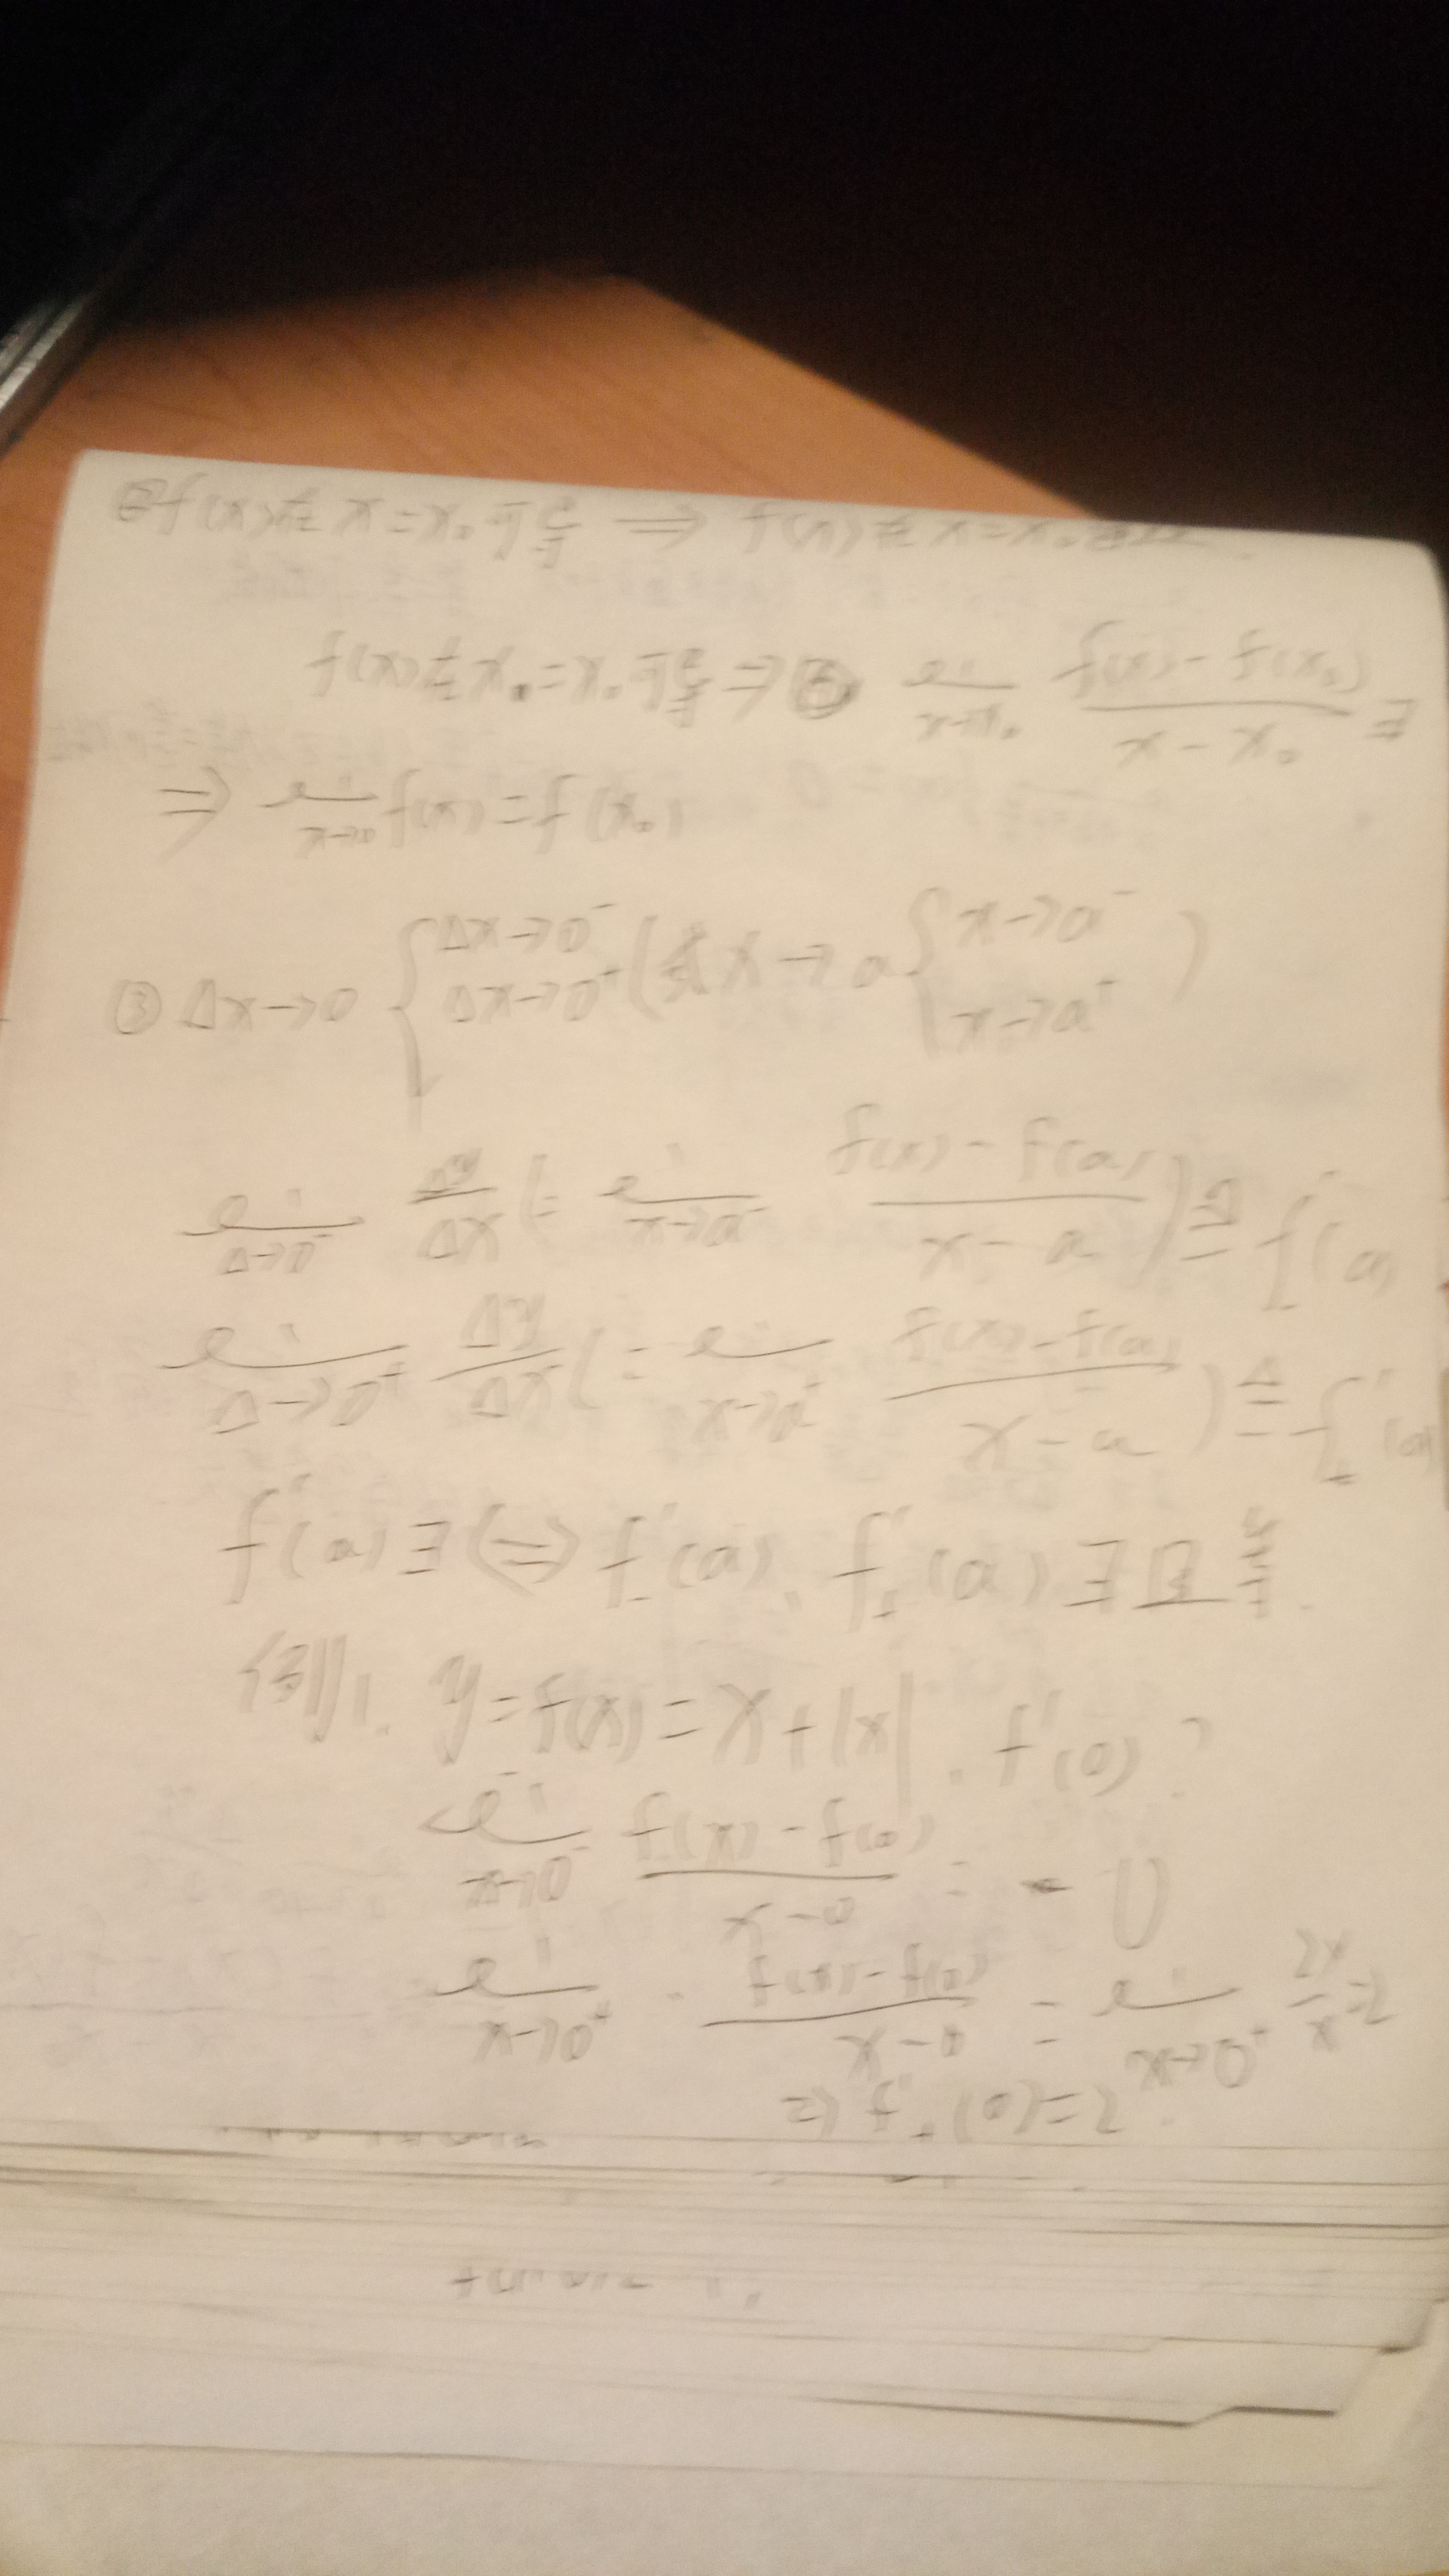 ②f(x)在x=x₀可导 ⇒ f(x)在x=x₀
f(x)在x₀=x₀可导 ⇒ lim x→x₀ (f(x)-f(x₀))/(x-x₀) ∃
⇒ lim x→x₀ f(x)=f(x₀)
③ Δx→0 { Δx→0⁻ Δx→0⁺ ( x→a { x→a⁻ x→a⁺ )
lim Δ→0⁻ Δy/Δx (= lim x→a⁻ (f(x)-f(a))/(x-a) ) ≜ f'₋(a)
lim Δ→0⁺ Δy/Δx (= lim x→a⁺ (f(x)-f(a))/(x-a) ) ≜ f'₊(a)
f'(a)∃ ⇔ f'₋(a), f'₊(a)∃且等.
例1. y=f(x)=x+|x|, f'(0)?
lim x→0⁻ (f(x)-f(0))/(x-0) = 0
lim x→0⁺ (f(x)-f(0))/(x-0) = lim x→0⁺ 2x/x=2
⇒ f'₊(0)=2